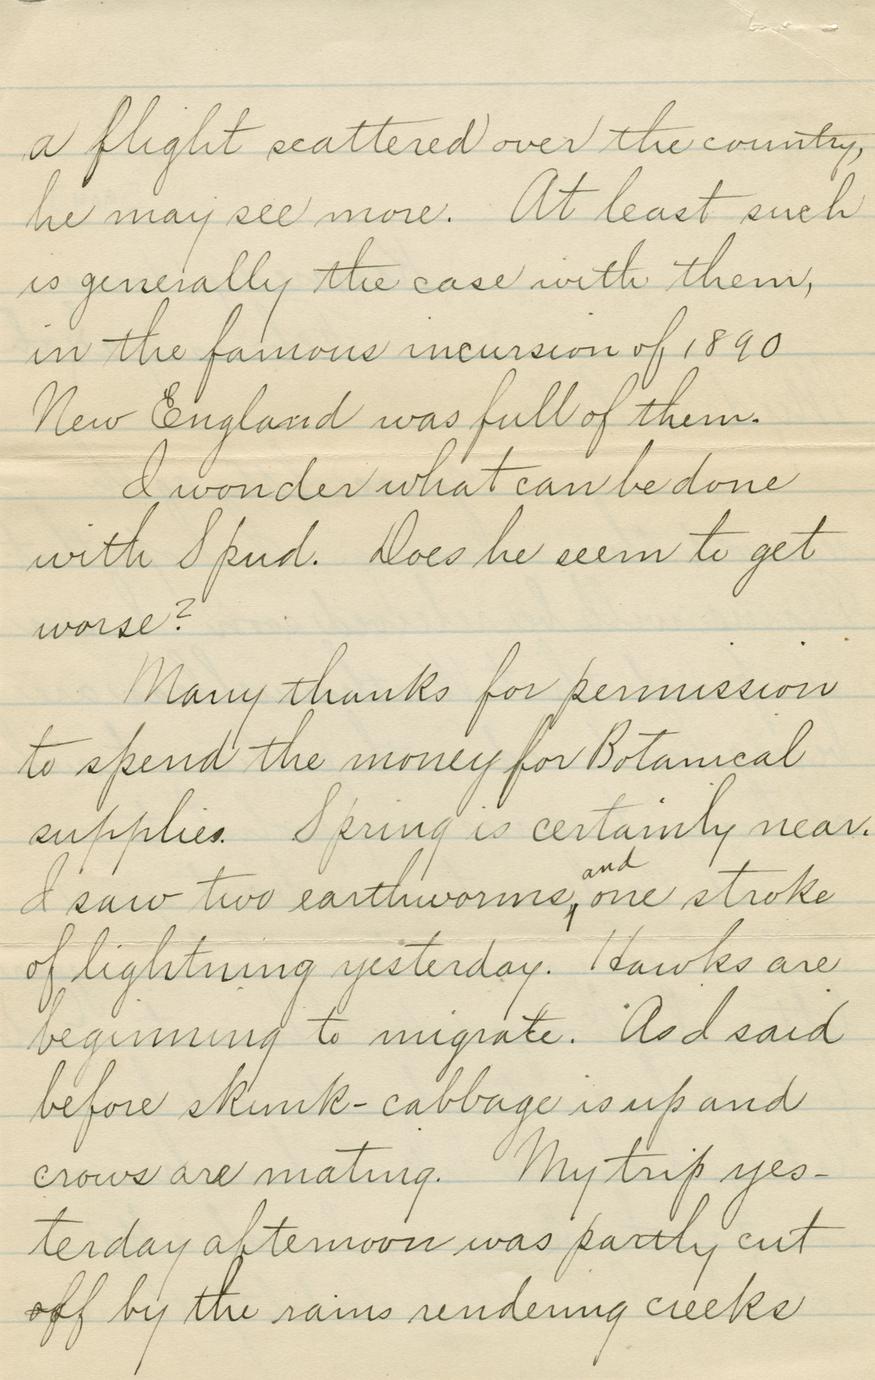 a flight scattered over the country,
he may see more. At least such
is generally the case with them,
in the famous incursion of 1890
New England was full of them.
I wonder what can be done
with Spud. Does he seem to get
worse?
Many thanks for permission
to spend the money for Botanical
supplies. Spring is certainly near.
I saw two earthworms, and one stroke
of lightning yesterday. Hawks are
beginning to migrate. As I said
before skunk-cabbage is up and
crows are mating. My trip yes-
terday afternoon was partly cut
off by the rains rendering creeks